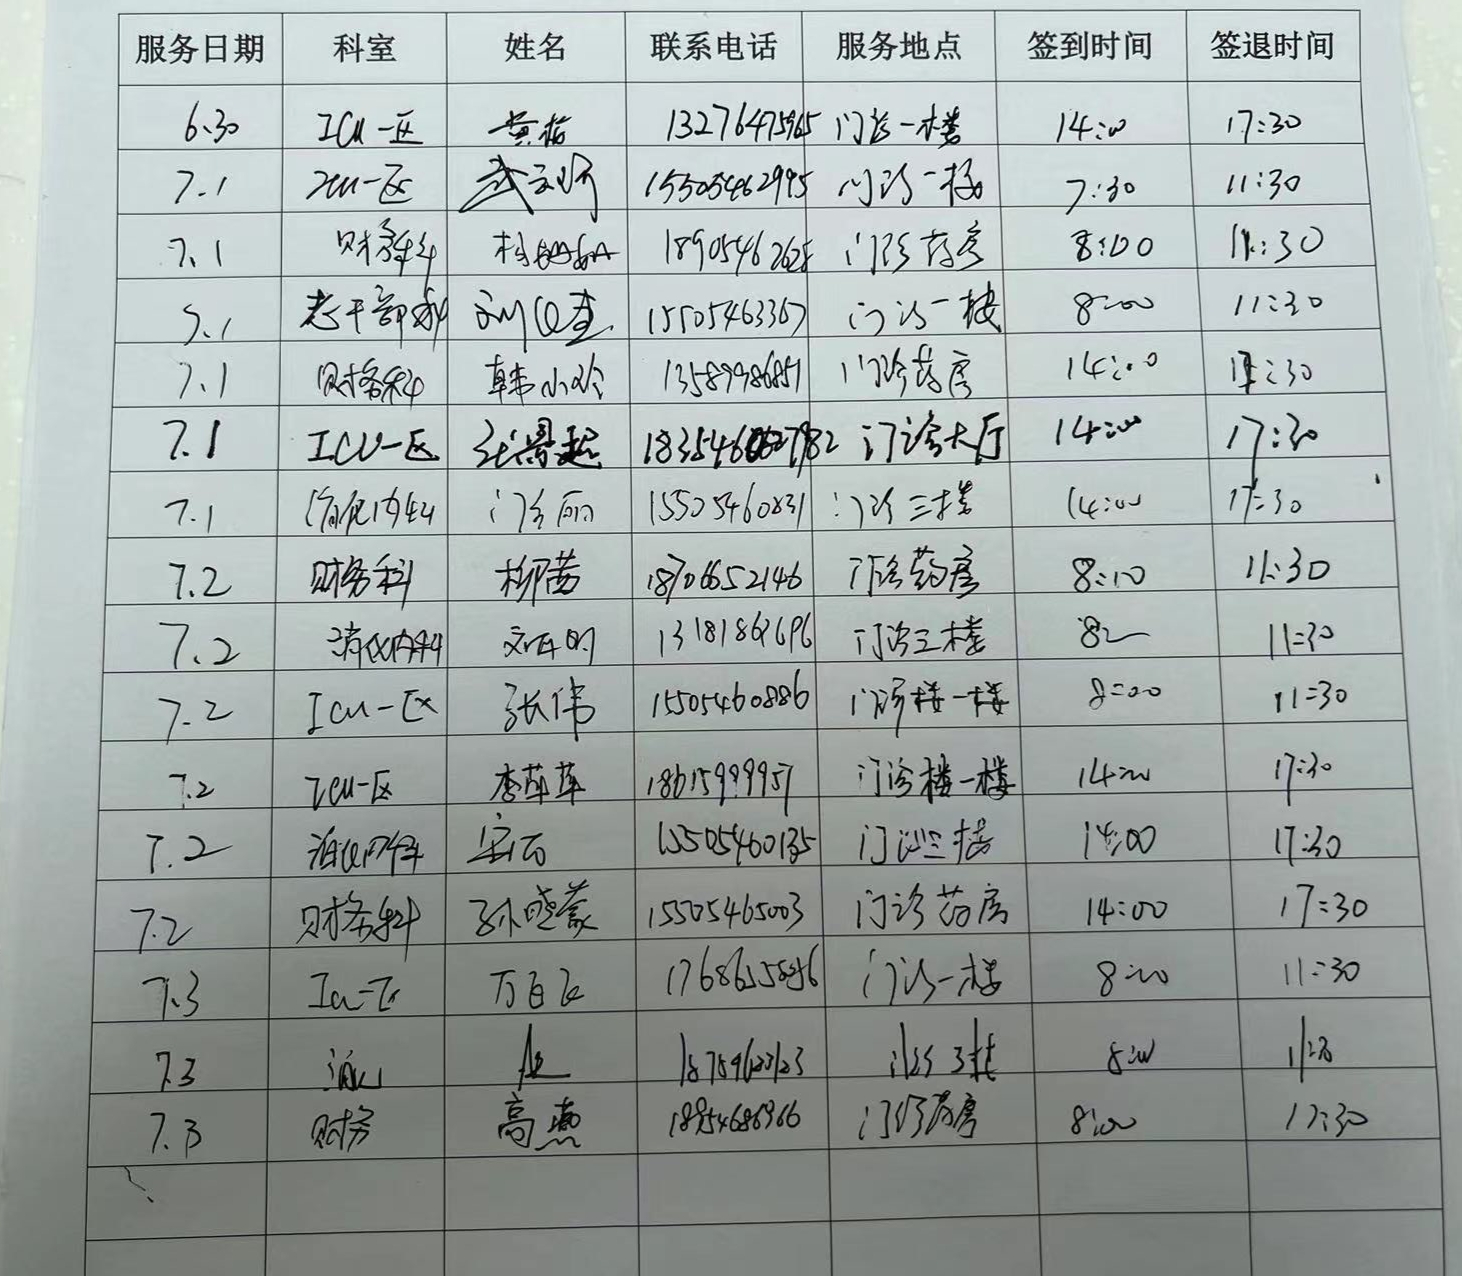 服务日期 科室 姓名 联系电话 服务地点 签到时间 签退时间
6.30 ICU一区 黄 13276475965 门诊一楼 14:00 17:30
7.1 ICU一区 武 15505462995 门诊一楼 7:30 11:30
7.1 财务科 1890546262 门诊药房 8:00 11:30
7.1 老干部科 刘 15505463367 门诊一楼 8:00 11:30
7.1 财务科 韩小玲 13589986851 门诊药房 14:00 17:30
7.1 ICU一区 张景超 门诊大厅 14:00 17:30
7.1 消化内科 丽 15505460831 门诊三楼 14:00 17:30
7.2 财务科 柳茜 18706652146 门诊药房 8:10 11:30
7.2 消化内科 门诊三楼 8:00 11:30
7.2 ICU一区 张伟 15505460886 门诊楼一楼 8:00 11:30
7.2 ICU一区 李苹苹 18615999957 门诊楼一楼 14:00 17:30
7.2 消化内科 15505460135 门诊三楼 14:00 17:30
7.2 财务科 孙晓蒙 15505465003 门诊药房 14:00 17:30
7.3 ICU一区 万 17686655846 门诊一楼 8:00 11:30
7.3 消化 门诊3楼 8:00
7.3 财务 高燕 18954686966 门诊药房 8:00 17:30